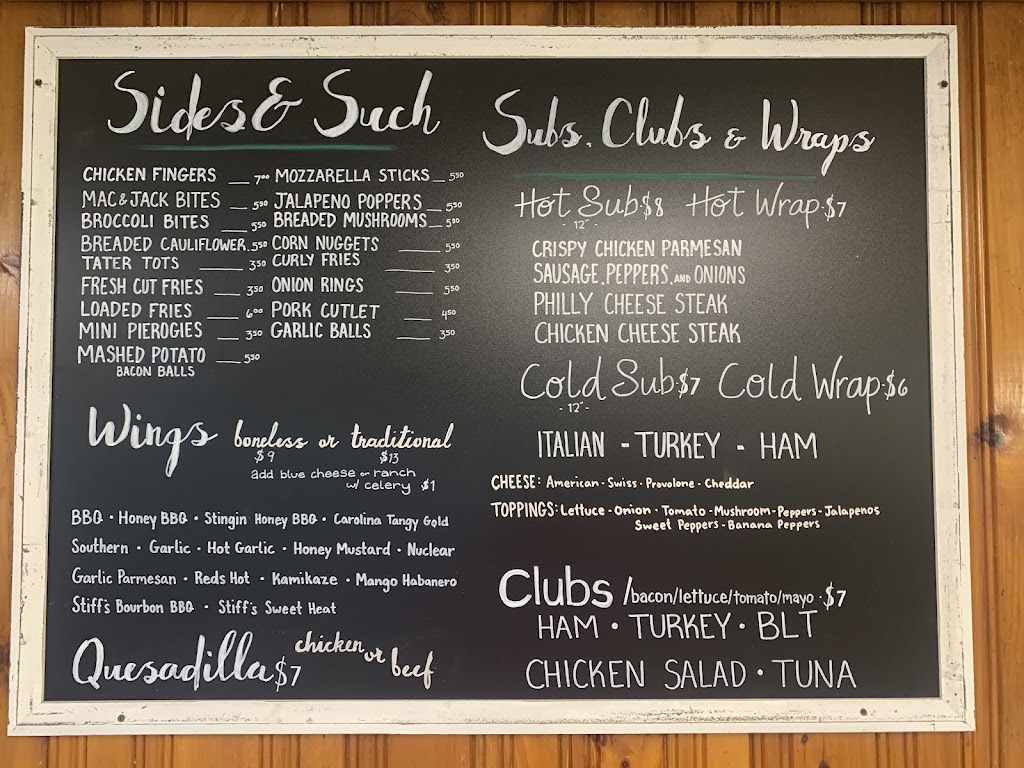 Sides & Such
CHICKEN FINGERS 7⁰⁰
MAC & JACK BITES 5⁵⁰
BROCCOLI BITES 5⁵⁰
BREADED CAULIFLOWER 5⁵⁰
TATER TOTS 3⁵⁰
FRESH CUT FRIES 3⁵⁰
LOADED FRIES 6⁰⁰
MINI PIEROGIES 3⁵⁰
MASHED POTATO 5⁵⁰
BACON BALLS
MOZZARELLA STICKS 5⁵⁰
JALAPENO POPPERS 5⁵⁰
BREADED MUSHROOMS 5⁵⁰
CORN NUGGETS 5⁵⁰
CURLY FRIES 3⁵⁰
ONION RINGS 5⁵⁰
PORK CUTLET 4⁵⁰
GARLIC BALLS 3⁵⁰
Wings boneless or traditional
$9 $13
add blue cheese or ranch
w/ celery $1
BBQ · Honey BBQ · Stingin Honey BBQ · Carolina Tangy Gold
Southern · Garlic · Hot Garlic · Honey Mustard · Nuclear
Garlic Parmesan · Reds Hot · Kamikaze · Mango Habanero
Stiff's Bourbon BBQ · Stiff's Sweet Heat
Quesadilla $7 chicken or beef
Subs, Clubs & Wraps
Hot Sub $8 Hot Wrap $7
- 12" -
CRISPY CHICKEN PARMESAN
SAUSAGE, PEPPERS, AND ONIONS
PHILLY CHEESE STEAK
CHICKEN CHEESE STEAK
Cold Sub $7 Cold Wrap $6
- 12" -
ITALIAN - TURKEY - HAM
CHEESE: American - Swiss - Provolone - Cheddar
TOPPINGS: Lettuce - Onion - Tomato - Mushroom - Peppers - Jalapenos
Sweet Peppers - Banana Peppers
Clubs /bacon/lettuce/tomato/mayo · $7
HAM · TURKEY · BLT
CHICKEN SALAD · TUNA